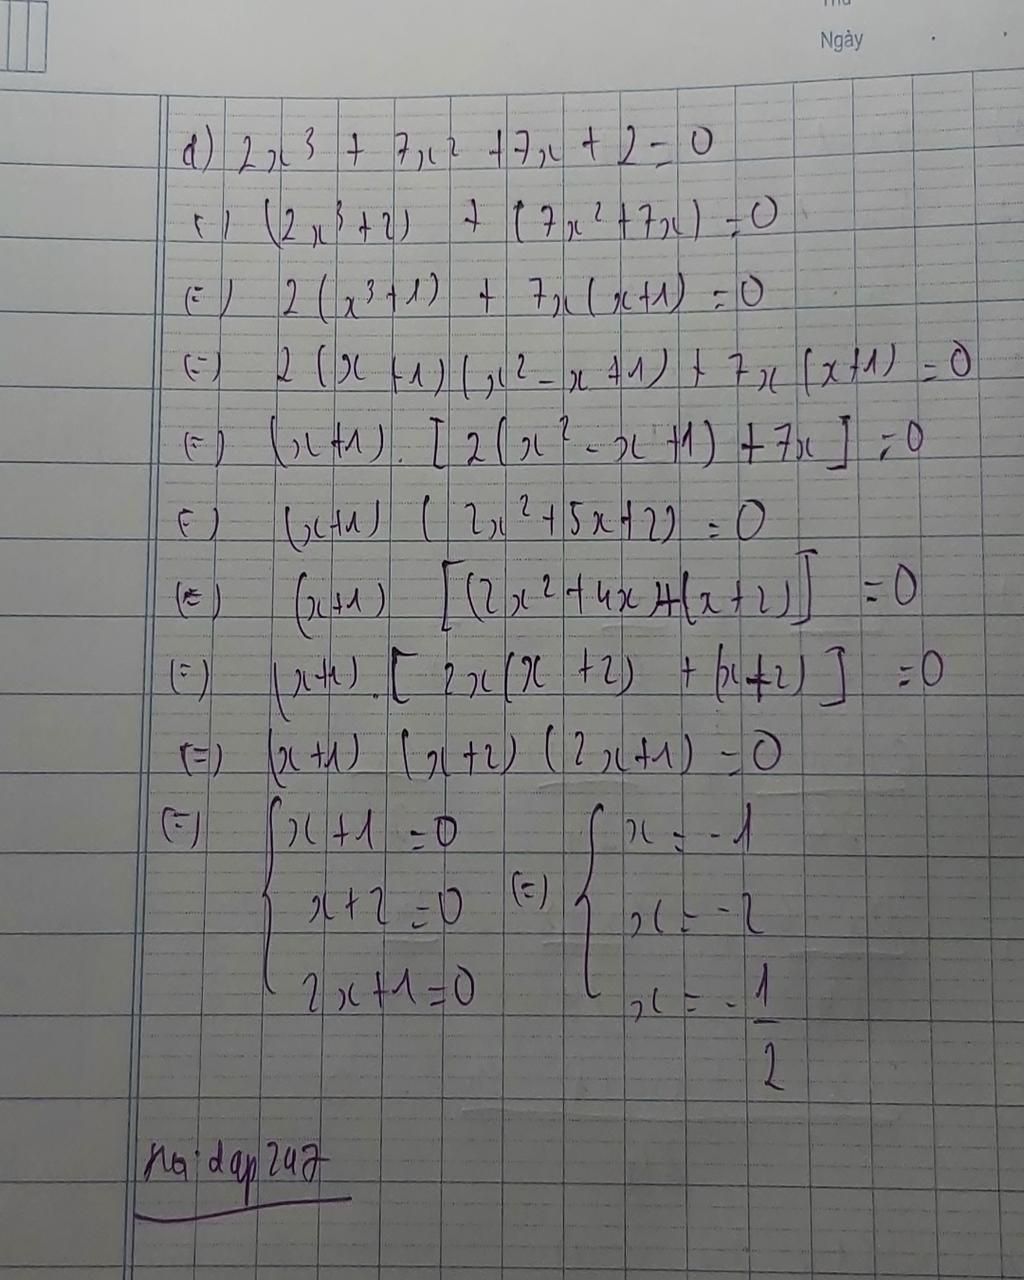 Thứ
Ngày
d) 2x³ + 7x² + 7x + 2 = 0
(=) (2x³+2) + (7x²+7x) = 0
(=) 2(x³+1) + 7x(x+1) = 0
(=) 2(x+1)(x²-x+1) + 7x(x+1) = 0
(=) (x+1).[2(x²-x+1)+7x] = 0
(=) (x+1)(2x²+5x+2) = 0
(=) (x+1) [(2x²+4x)+(x+2)] = 0
(=) (x+1).[2x(x+2) + (x+2)] = 0
(=) (x+1)(x+2)(2x+1) = 0
(=) { x+1 = 0 (=) { x = -1
x+2 = 0 x = -2
2x+1 = 0 x = -1/2
Hoidap247